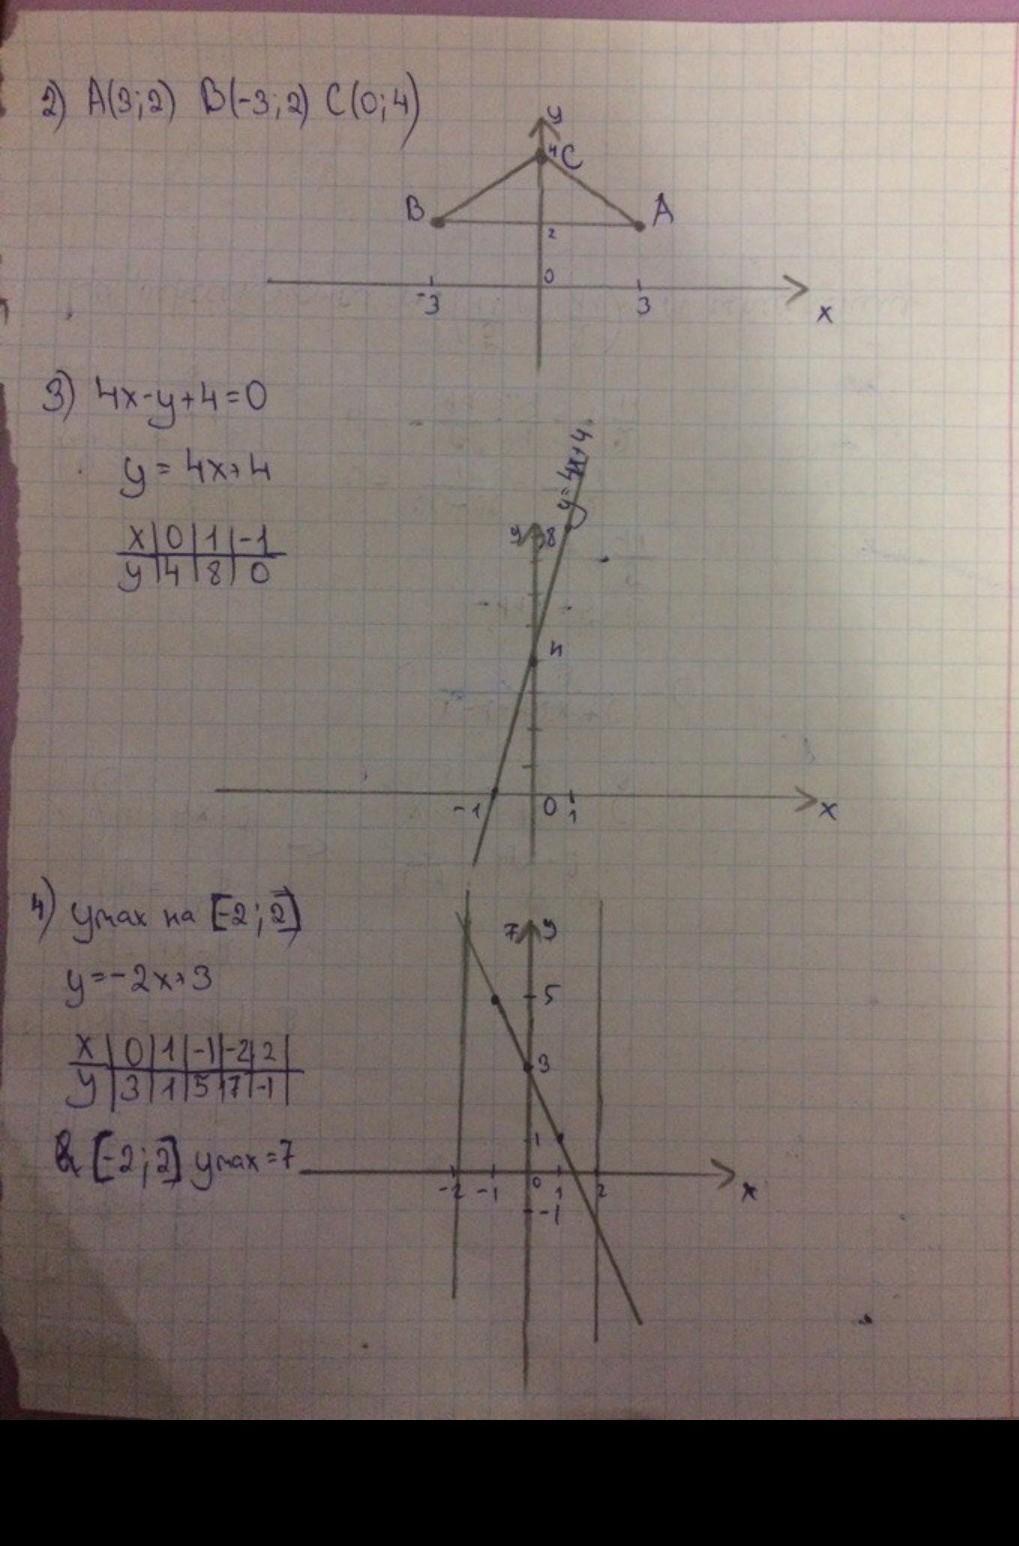 2) A(3;2) B(-3;2) C(0;4)
y
4 C
B A
2
0
-3 3
x
3) 4x-y+4=0
y=4x+4
y=4x+4
x|0|1|-1
y|4|8|0
y 8
4
-1 0 1 x
4) yмах на [-2;2]
7 y
y=-2x+3
5
x|0|1|-1|-2|2|
y|3|1|5|7|-1|
3
1
[-2;2] yмах=7
-2 -1 0 1 2 x
-1